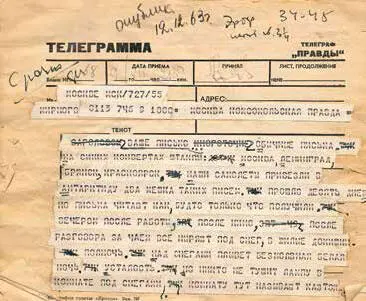 опублик
12.12.63г.
34-45
ТЕЛЕГРАММА
ТЕЛЕГРАФ
„ПРАВДЫ"
Срочно
ДАТА ПРИЕМА
ПРИНЯЛ
ЛИСТ, ПРОДОЛЖЕНИЕ
МОСКВЫ МСК/727/55
АДРЕС:
МИРНОГО 9113 746 9 1000= МОСКВА КОМСОМОЛЬСКАЯ ПРАВДА=
ТЕКСТ
ЗАГОЛОВОК ВАШЕ ПИСЬМО МНОГОТОЧИЕ ОБЫЧНЫЕ ПИСЬМА
НА СИНИХ КОНВЕРТАХ МОСКВА, ЛЕНИНГРАД,
БРЯНСК, КРАСНОЯРСК, НАШИ САМОЛЕТЫ ПРИВЕЗЛИ В
АНТАРКТИДУ ДВА МЕШКА ТАКИХ ПИСЕМ, ПРОШЛО ДЕСЯТЬ ДНЕЙ
НО ПИСЬМА ЧИТАЮТ КАК, БУДТО ТОЛЬКО ЧТО ПОЛУЧИЛИ,
ВЕЧЕРОМ ПОСЛЕ РАБОТЫ, ПОСЛЕ КИНО, ПОСЛЕ
РАЗГОВОРА ЗА ЧАЕМ ВСЕ НЫРЯЮТ ПОД СНЕГ, В ЖИЛЫЕ ДОМИКИ
ПОЛНОЧЬ, НАД СНЕГАМИ СИЯЕТ БЕЗМОЛВНАЯ БЕЛАЯ
НОЧЬ, УСТАЛОСТЬ, НО НИКТО НЕ ТУШИТ ЛАМПУ В
КОМНАТЕ ПОД СНЕГАМИ, КОМНАТУ ТУТ НАЗЫВАЮТ КАЮТОЙ